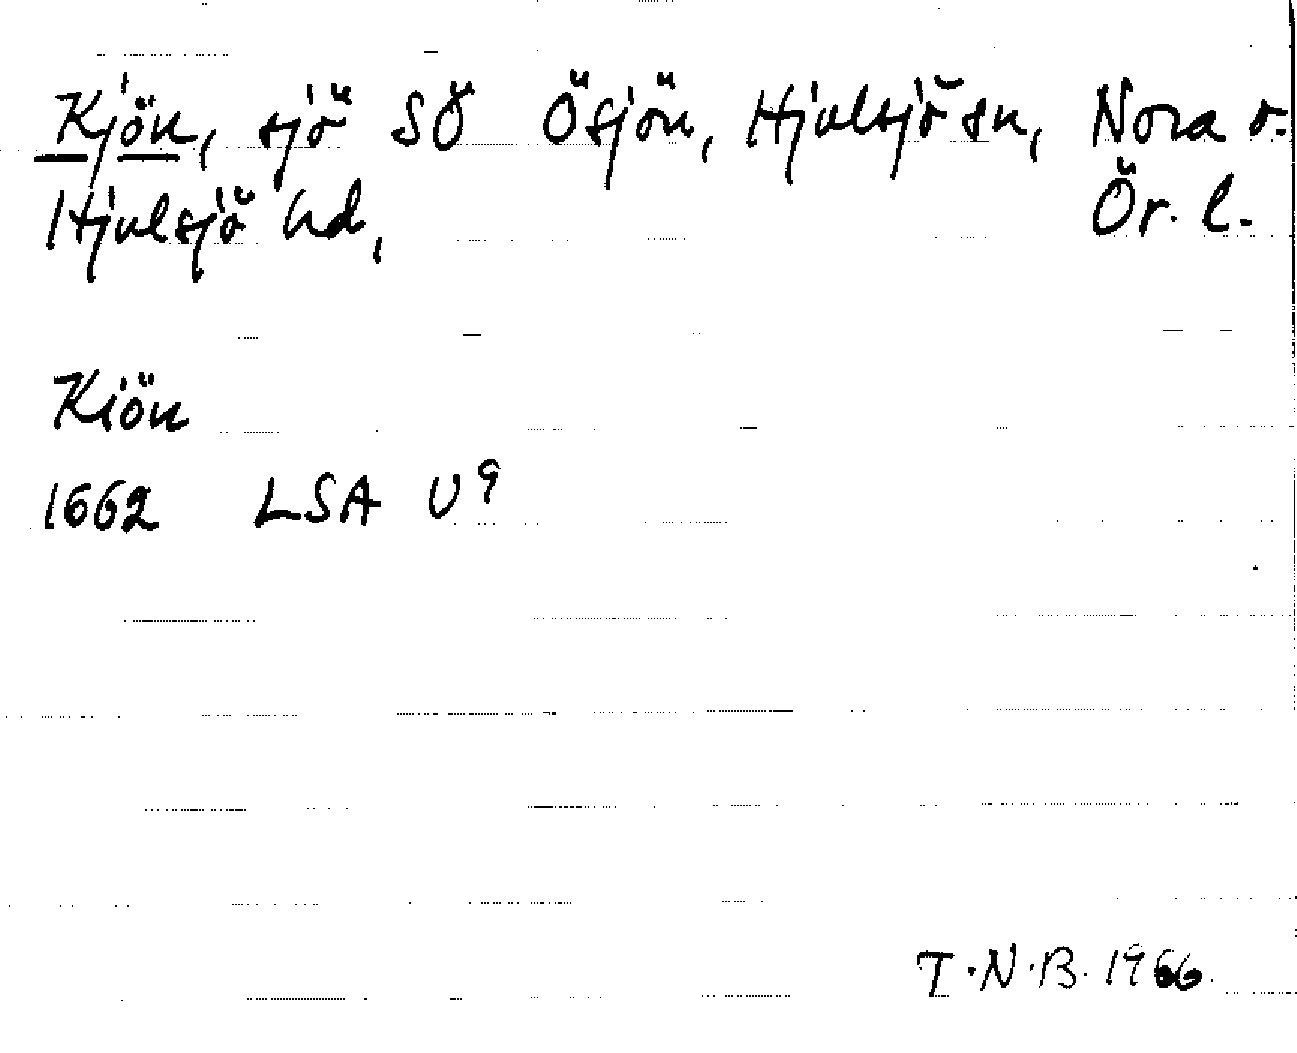 Kjön, sjö SÖ Ösjön, Hjulsjö sn, Nora o.
Hjulsjö hd, Ör. l.
Kiön
1662 LSA U9
T.N.B. 1966.